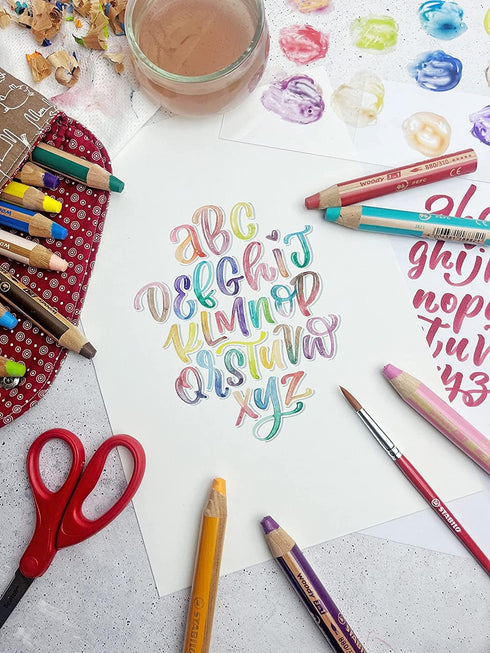 aBC
DEFGHiJ
KLMNOP
QRSTUVW
XYZ
woody 3in1 880/310
CE
ghij
nop
tuv
STABILO
STABILO
woody 3in1 880